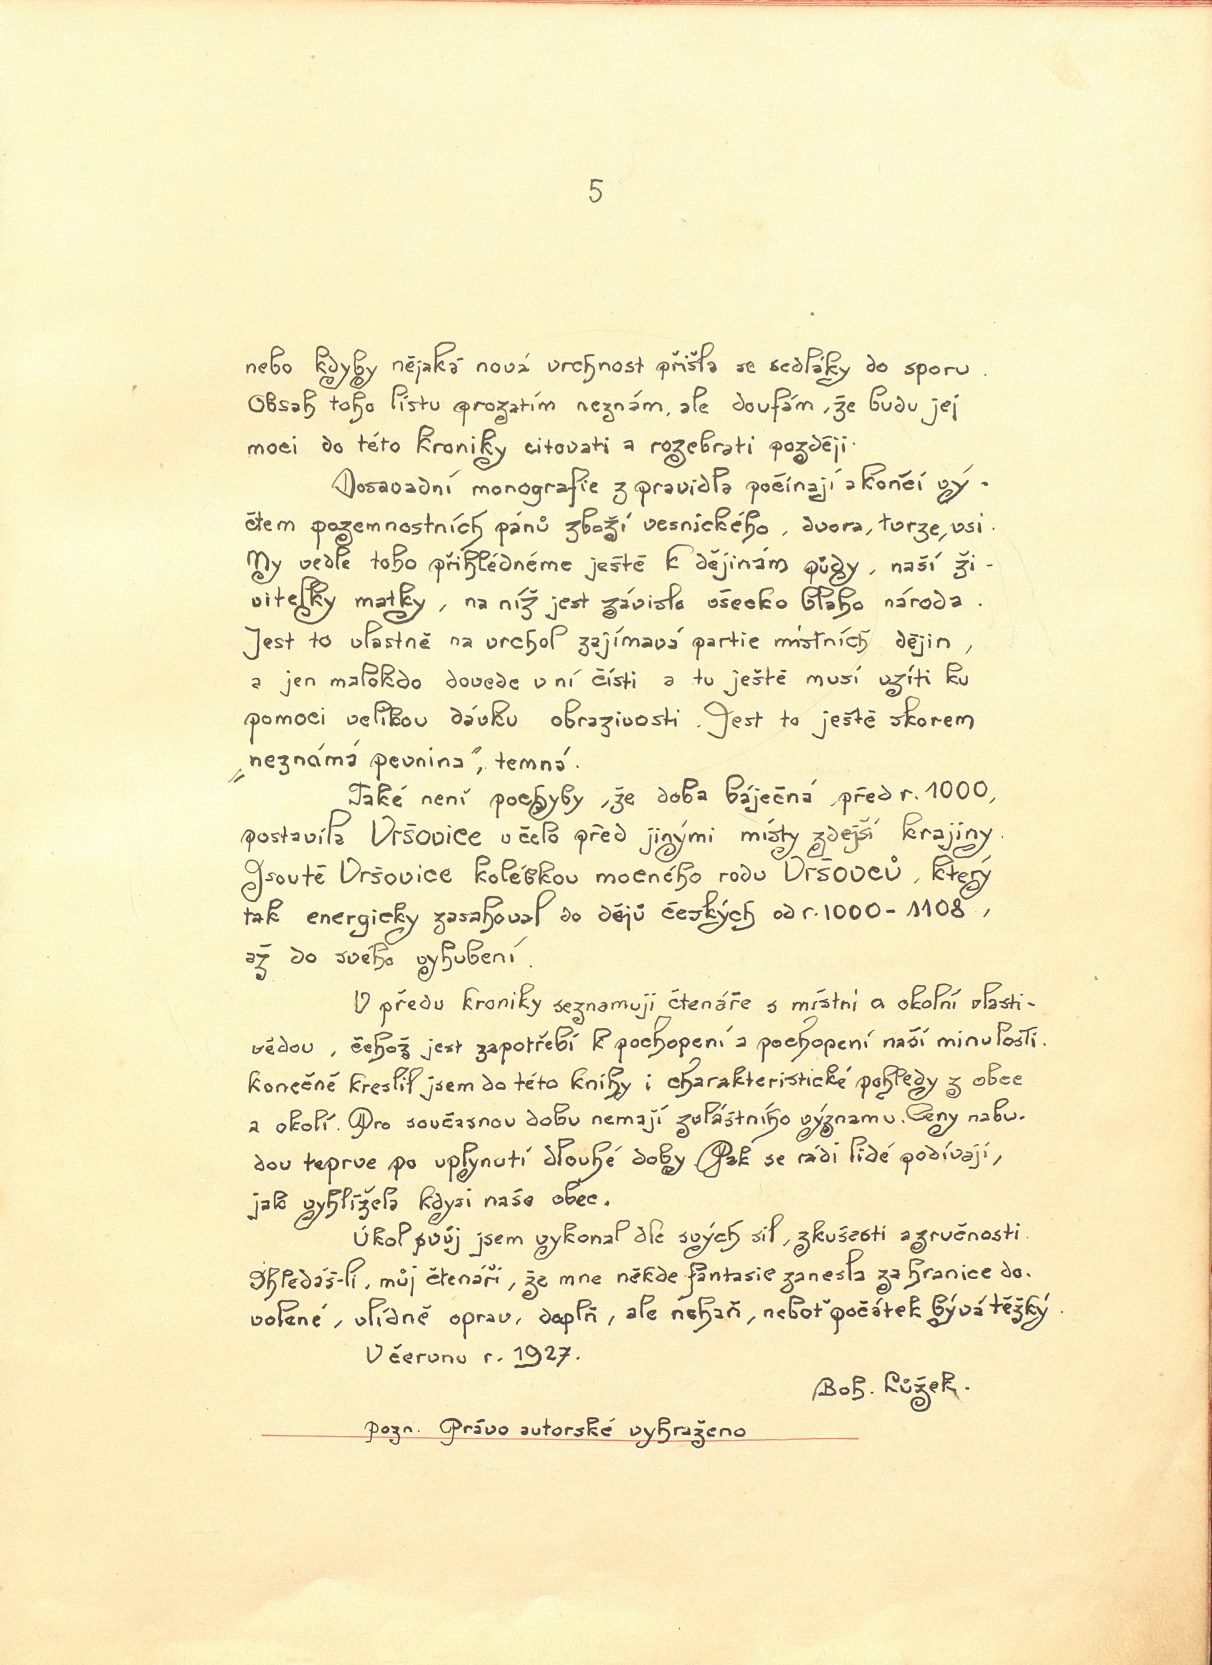 5
nebo kdyby nějaká nová vrchnost přišla se sedláky do sporu.
Obsah toho listu prozatím neznám, ale doufám, že budu jej
moci do této kroniky citovati a rozebrati později.
Dosavadní monografie z pravidla počínají a končí vý-
čtem pozemnostních pánů zboží vesnického, dvora, tvrze, vsi.
My vedle toho přihlédnéme ještě k dějinám půdy, naší ži-
vitelky matky, na níž jest závislo všecko blaho národa.
Jest to vlastně na vrchol zajímavá partie místních dějin,
a jen málokdo dovede v ní čísti a tu ještě musí vzíti ku
pomoci velikou dávku obrazivosti. Jest to ještě skorem
„neznámá pevnina“, temná.
Také není pochyby, že doba báječná, před r. 1000,
postavila Vršovice v čelo před jinými místy zdejší krajiny.
Jsoutě Vršovice kolébkou mocného rodu Vršovců, který
tak energicky zasahoval do dějů českých od r. 1000 - 1108,
až do svého vyhubení.
V předu kroniky seznamuji čtenáře s místní a okolní vlasti-
vědou, čehož jest zapotřebí k pochopení a pochopení naší minulosti.
Konečně kreslil jsem do této knihy i charakteristické pohledy z obce
a okolí. Pro současnou dobu nemají zvláštního významu. Ceny nabu-
dou teprve po uplynutí dlouhé doby. Pak se rádi lidé podívají,
jak vyhlížela kdysi naše obec.
Úkol svůj jsem vykonal dle svých sil, zkušeností a zručnosti.
Shledáš-li, můj čtenáři, že mne někde fantasie zanesla za hranice do-
volené, vlídně oprav, doplň, ale nehaň, neboť počátek bývá těžký.
V červnu r. 1927.
Boh. Lůžek.
pozn. Právo autorské vyhraženo